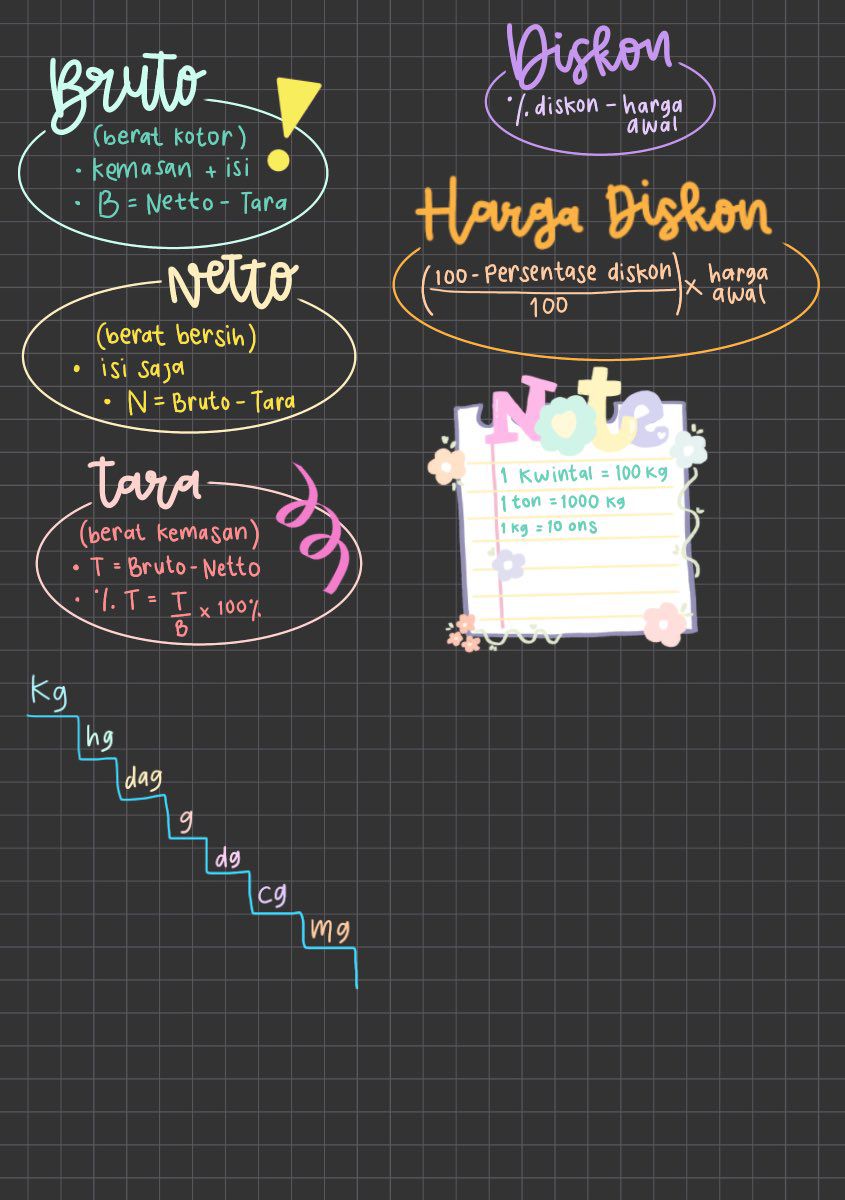 Bruto
(berat kotor)
• kemasan + isi
• B = Netto - Tara
Netto
(berat bersih)
• isi saja
• N = Bruto - Tara
tara
(berat kemasan)
• T = Bruto - Netto
• % T = T/B x 100%
Kg
hg
dag
g
dg
cg
mg
Diskon
% diskon - harga
awal
Harga Diskon
(100 - Persentase diskon / 100) x harga
awal
Note
1 Kwintal = 100 kg
1 ton = 1000 kg
1 kg = 10 ons